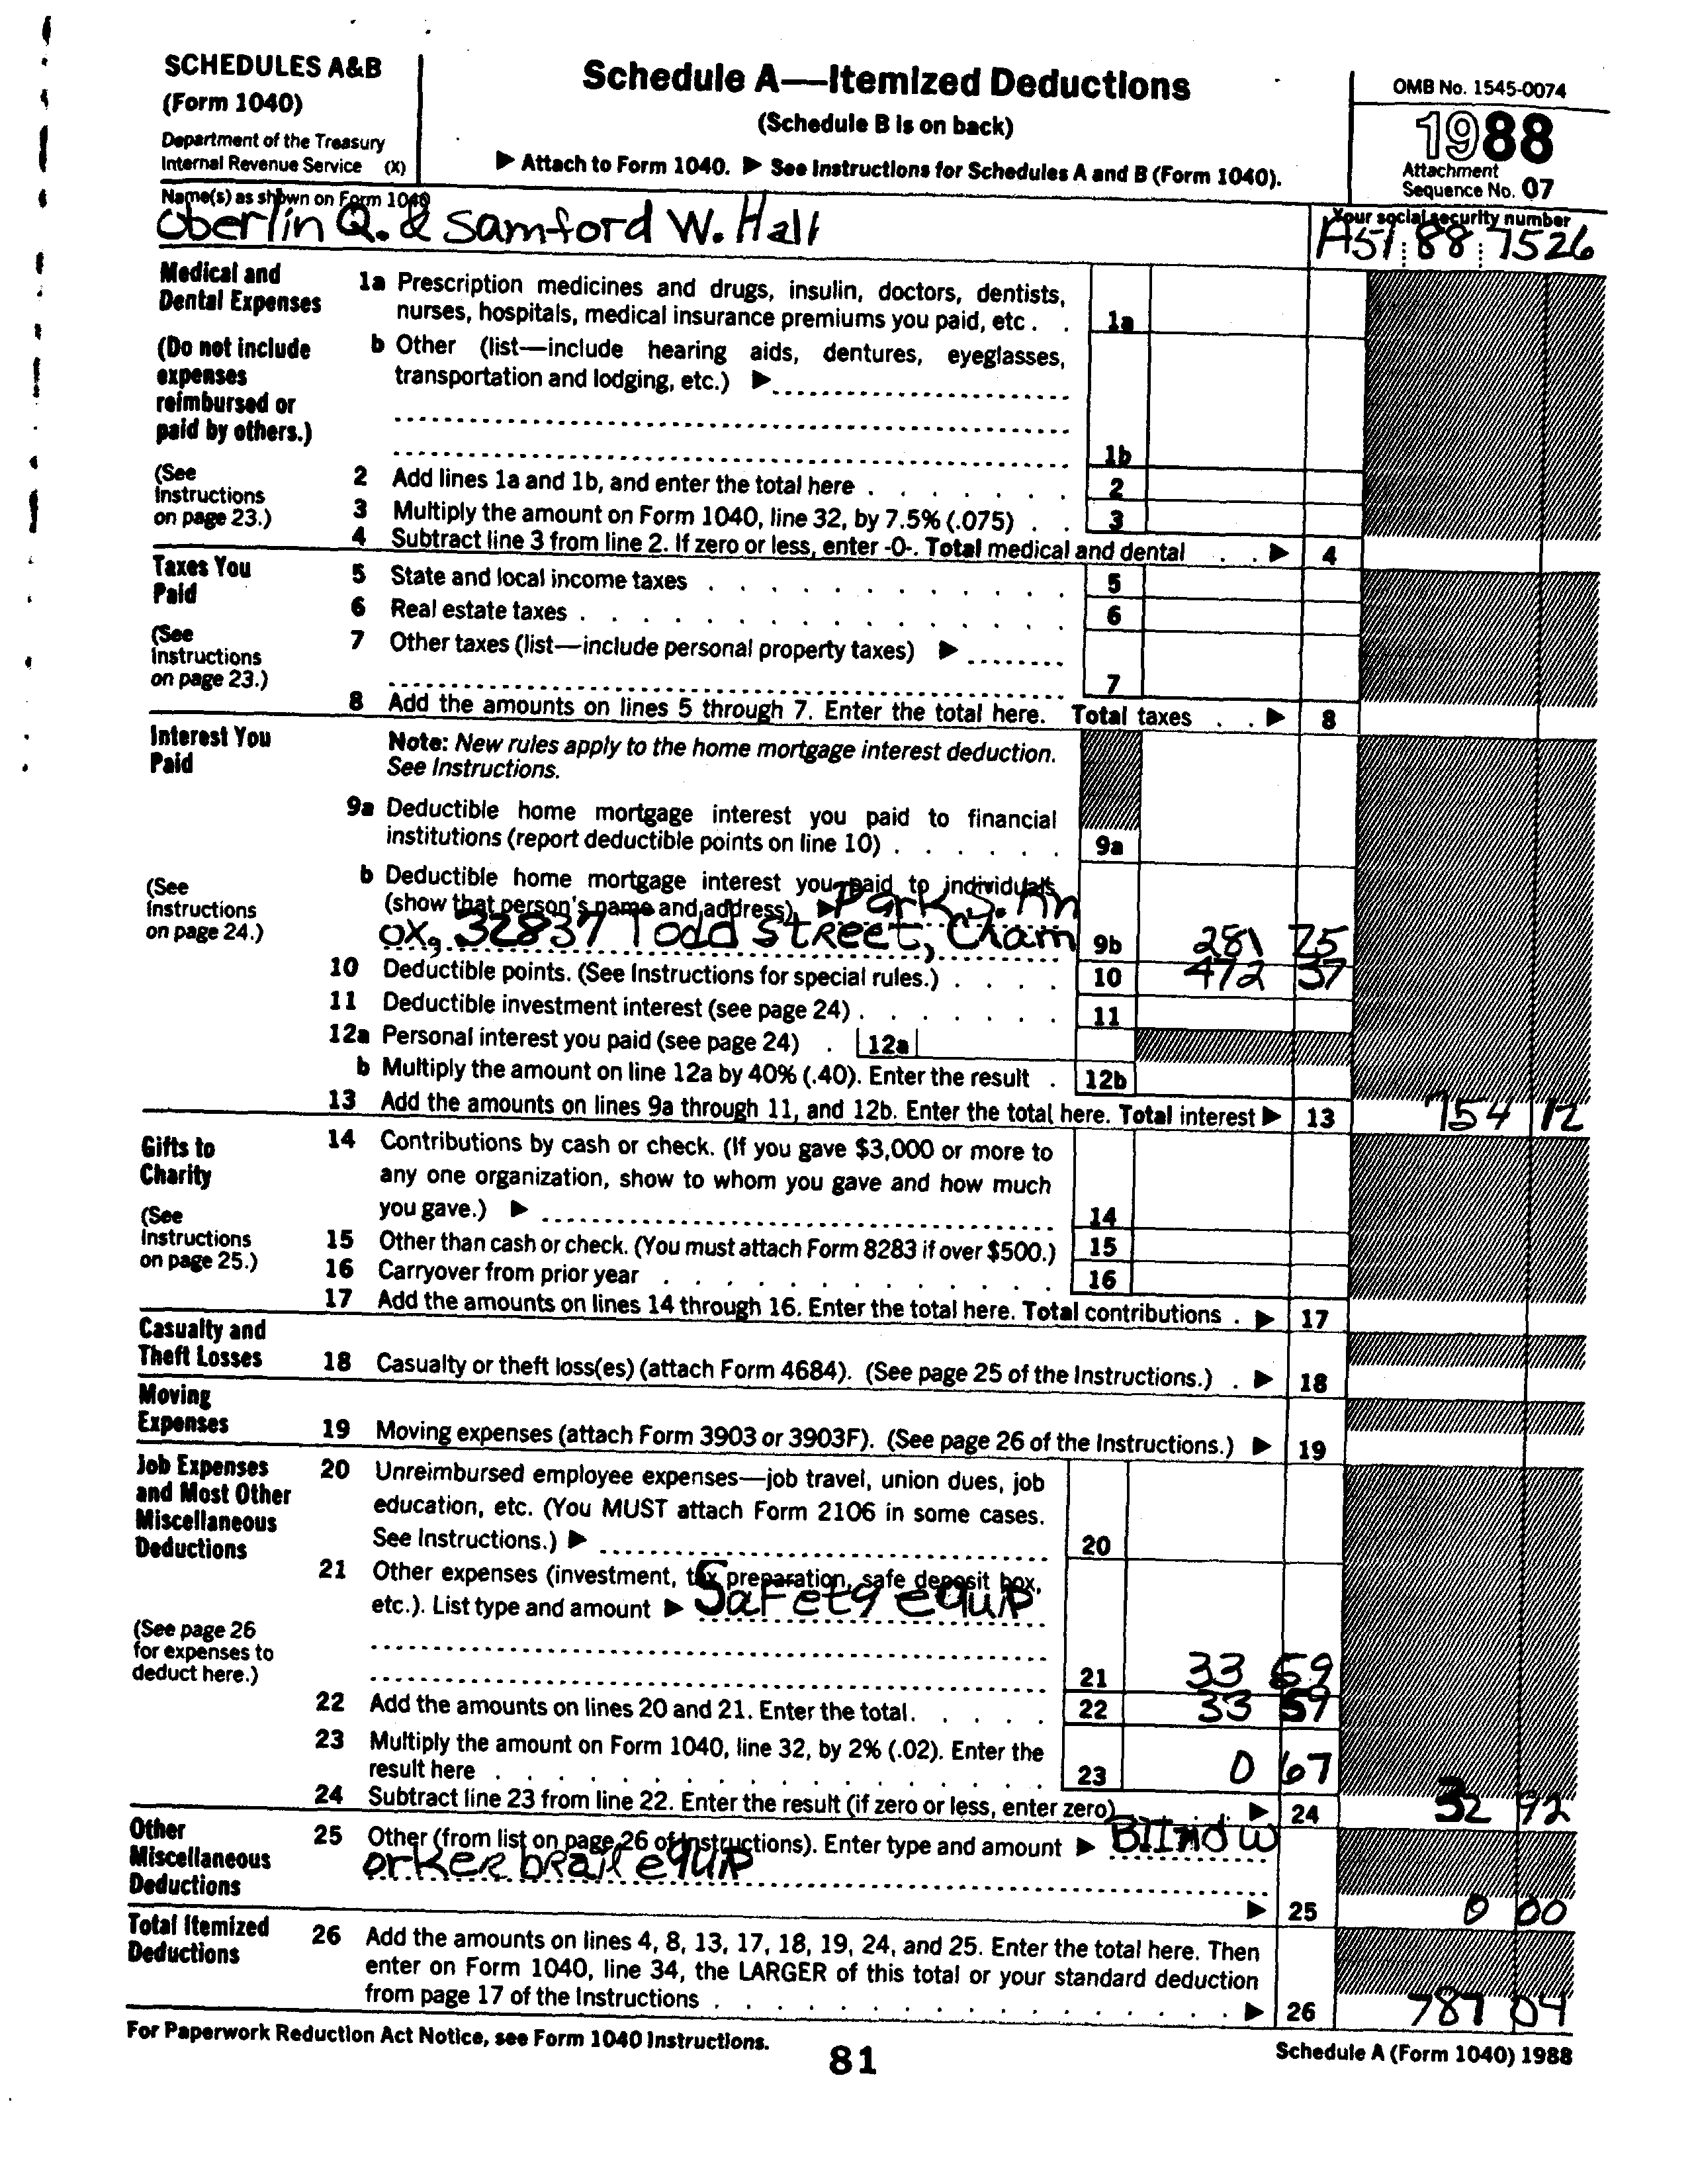 SCHEDULES A&B
(Form 1040)
Department of the Treasury
Internal Revenue Service (X)
Schedule A—Itemized Deductions
(Schedule B is on back)
▶ Attach to Form 1040. ▶ See Instructions for Schedules A and B (Form 1040).
OMB No. 1545-0074
1988
Attachment
Sequence No. 07
Name(s) as shown on Form 1040
Oberlin Q. & Samford W. Hall
Your social security number
A51 88 7526
Medical and
Dental Expenses
(Do not include
expenses
reimbursed or
paid by others.)
(See
Instructions
on page 23.)
1a Prescription medicines and drugs, insulin, doctors, dentists,
nurses, hospitals, medical insurance premiums you paid, etc . . 1a
b Other (list—include hearing aids, dentures, eyeglasses,
transportation and lodging, etc.) ▶
1b
2 Add lines 1a and 1b, and enter the total here . . . . . . . 2
3 Multiply the amount on Form 1040, line 32, by 7.5% (.075) . . 3
4 Subtract line 3 from line 2. If zero or less, enter -0-. Total medical and dental . . ▶ 4
Taxes You
Paid
(See
Instructions
on page 23.)
5 State and local income taxes . . . . . . . . . . . . 5
6 Real estate taxes . . . . . . . . . . . . . . . . 6
7 Other taxes (list—include personal property taxes) ▶
7
8 Add the amounts on lines 5 through 7. Enter the total here. Total taxes . . ▶ 8
Interest You
Paid
(See
Instructions
on page 24.)
Note: New rules apply to the home mortgage interest deduction.
See Instructions.
9a Deductible home mortgage interest you paid to financial
institutions (report deductible points on line 10) . . . . . . 9a
b Deductible home mortgage interest you paid to individuals
(show that person's name and address). ▶ Park S. Kn
ox, 32837 Todd Street, Cham 9b 281 75
10 Deductible points. (See Instructions for special rules.) . . . . 10 472 37
11 Deductible investment interest (see page 24) . . . . . . . 11
12a Personal interest you paid (see page 24) . 12a
b Multiply the amount on line 12a by 40% (.40). Enter the result . 12b
13 Add the amounts on lines 9a through 11, and 12b. Enter the total here. Total interest ▶ 13 754 12
Gifts to
Charity
(See
Instructions
on page 25.)
14 Contributions by cash or check. (If you gave $3,000 or more to
any one organization, show to whom you gave and how much
you gave.) ▶ 14
15 Other than cash or check. (You must attach Form 8283 if over $500.) 15
16 Carryover from prior year . . . . . . . . . . . . . 16
17 Add the amounts on lines 14 through 16. Enter the total here. Total contributions . ▶ 17
Casualty and
Theft Losses
18 Casualty or theft loss(es) (attach Form 4684). (See page 25 of the Instructions.) . ▶ 18
Moving
Expenses
19 Moving expenses (attach Form 3903 or 3903F). (See page 26 of the Instructions.) ▶ 19
Job Expenses
and Most Other
Miscellaneous
Deductions
(See page 26
for expenses to
deduct here.)
20 Unreimbursed employee expenses—job travel, union dues, job
education, etc. (You MUST attach Form 2106 in some cases.
See Instructions.) ▶ 20
21 Other expenses (investment, tax preparation, safe deposit box,
etc.). List type and amount ▶ Safety equip
21 33 59
22 Add the amounts on lines 20 and 21. Enter the total. . . . . 22 33 59
23 Multiply the amount on Form 1040, line 32, by 2% (.02). Enter the
result here . . . . . . . . . . . . . . . . . . . 23 0 67
24 Subtract line 23 from line 22. Enter the result (if zero or less, enter zero) . . . ▶ 24 32 92
Other
Miscellaneous
Deductions
25 Other (from list on page 26 of Instructions). Enter type and amount ▶ Blind w
orker brail equip
▶ 25 0 00
Total Itemized
Deductions
26 Add the amounts on lines 4, 8, 13, 17, 18, 19, 24, and 25. Enter the total here. Then
enter on Form 1040, line 34, the LARGER of this total or your standard deduction
from page 17 of the Instructions . . . . . . . . . . . . . . . . . . ▶ 26 787 04
For Paperwork Reduction Act Notice, see Form 1040 Instructions.
81
Schedule A (Form 1040) 1988